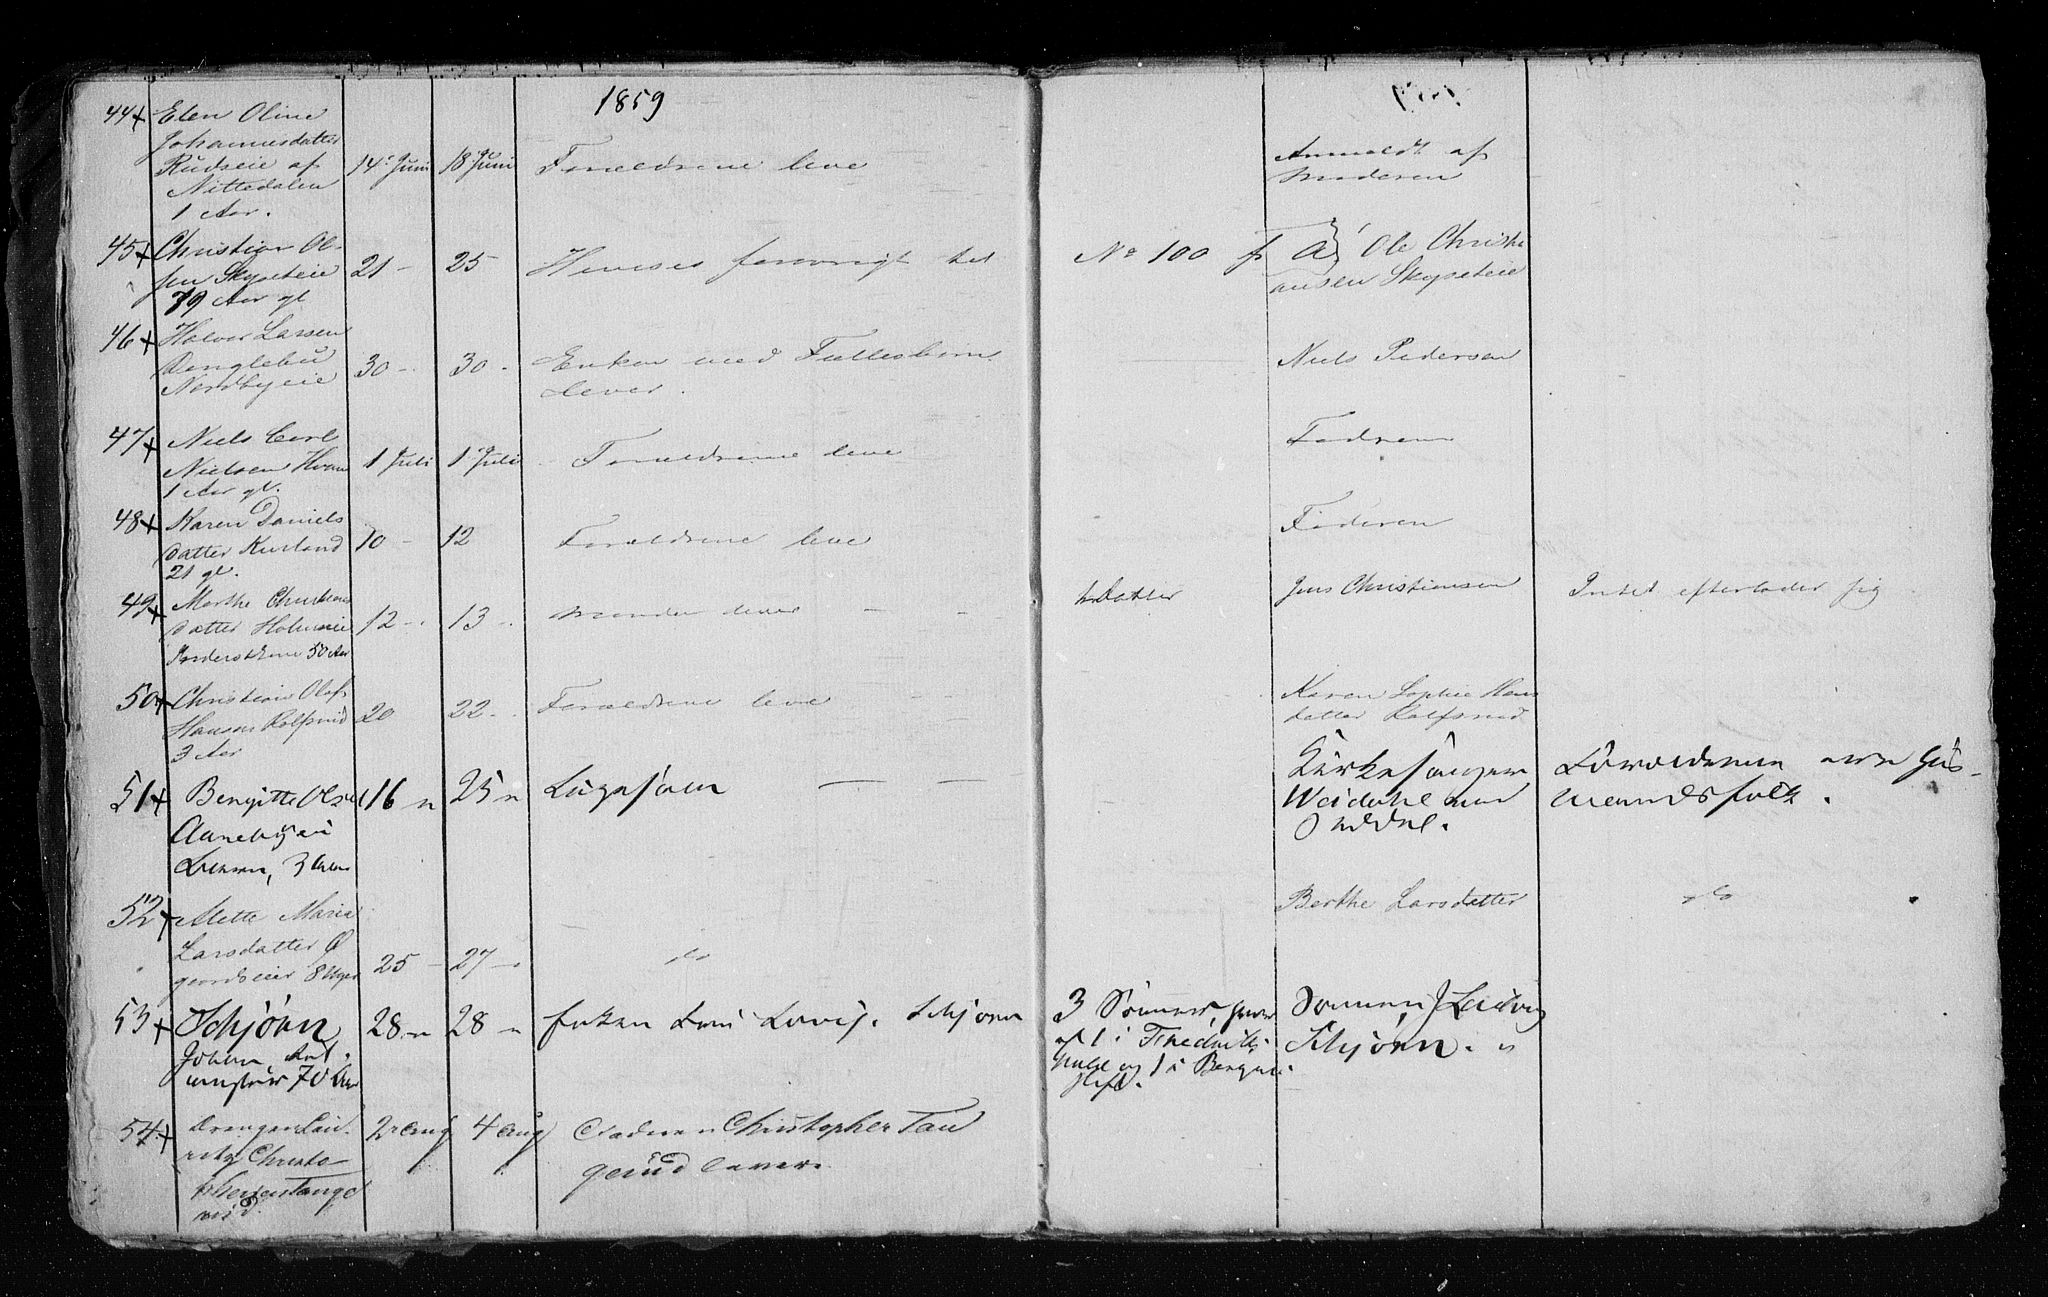 1859
44 Elen Oline
Johannesdatter
Rudseie af
Nittedalen
1 Aar.
14' Juni 18 Juni Forældrene leve
Anmeldt af
Moderen
45 Christian Ol-
sen Skyseteie
79 Aar gl
21 - 25 Henvises forøvrigt til
No 100 f a Ole Christi
ansen Skyseteie
46 Halvor Larsen
Denglebu
Nordbyeie
30 - 30 - Enken med Fællesbørn
lever.
Niels Pedersen
47 Niels Carl
Nielsen Hvam
1 Aar gl.
1 Juli 1 Juli Forældrene leve
Fadren
48 Karen Daniels
datter Kurland
21 gl.
10 - 12 Forældrene leve
Faderen
49 Marthe Christians
datter Holmeie
50 Aar
12 - 13 - Manden lever - -
Datter
Jens Christiansen
Intet efterlader sig
50 Christian Olaf
Hansen Rolfsrud
3 Aar
20 22 - Forældrene leve - -
Karen Sophie Hans
datter Rolfsrud
51 Bergitte Olsd
Lensm, 3
16 " 25 "
Kirkesanger
Weidahl
Forældrene ere Huus-
mandsfolk.
52 Mette Maria
Larsdatter Ø
gaardseier 8 Uger
25 - 27 - do
Berthe Larsdatter
do
53 Schjörn
Johan
70 Aar
28 " 28 " Enken Lovis. Schjörn
3 Sønner, hvor
af 1 i Fredriks-
hald og 1 i Bergens
Stift.
Sønnen, J Ludvig
Schjörn. "
54 Drengen Lau-
ritz Christo
phersen Tange
rud.
2 Aug 4 Aug Faderen Christopher Tan
gerud lever.